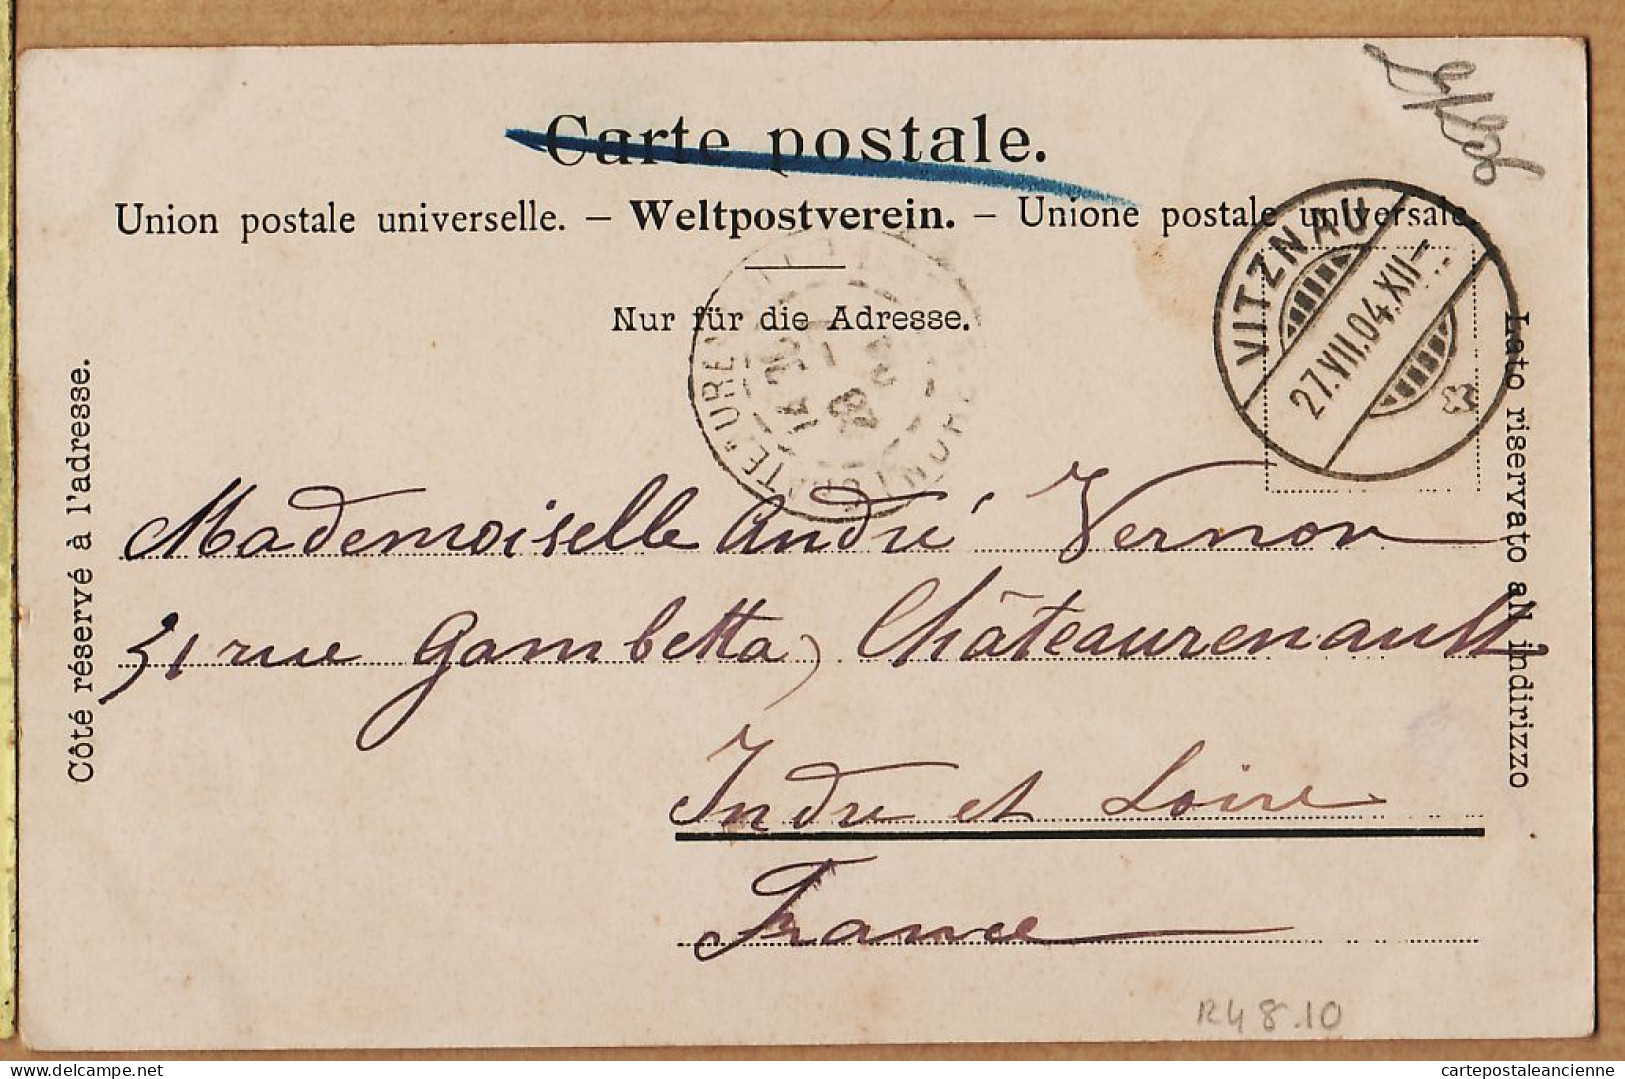 Carte postale.
Union postale universelle. – Weltpostverein. – Unione postale universale.
Nur für die Adresse.
VITZNAU
27.VII.04.XII–
Côté réservé à l'adresse.
Lato riservato all'indirizzo
Mademoiselle André Vernon
31 rue Gambetta, Châteaurenault
Indre et Loire
France
R48.10
cartepostaleancienne